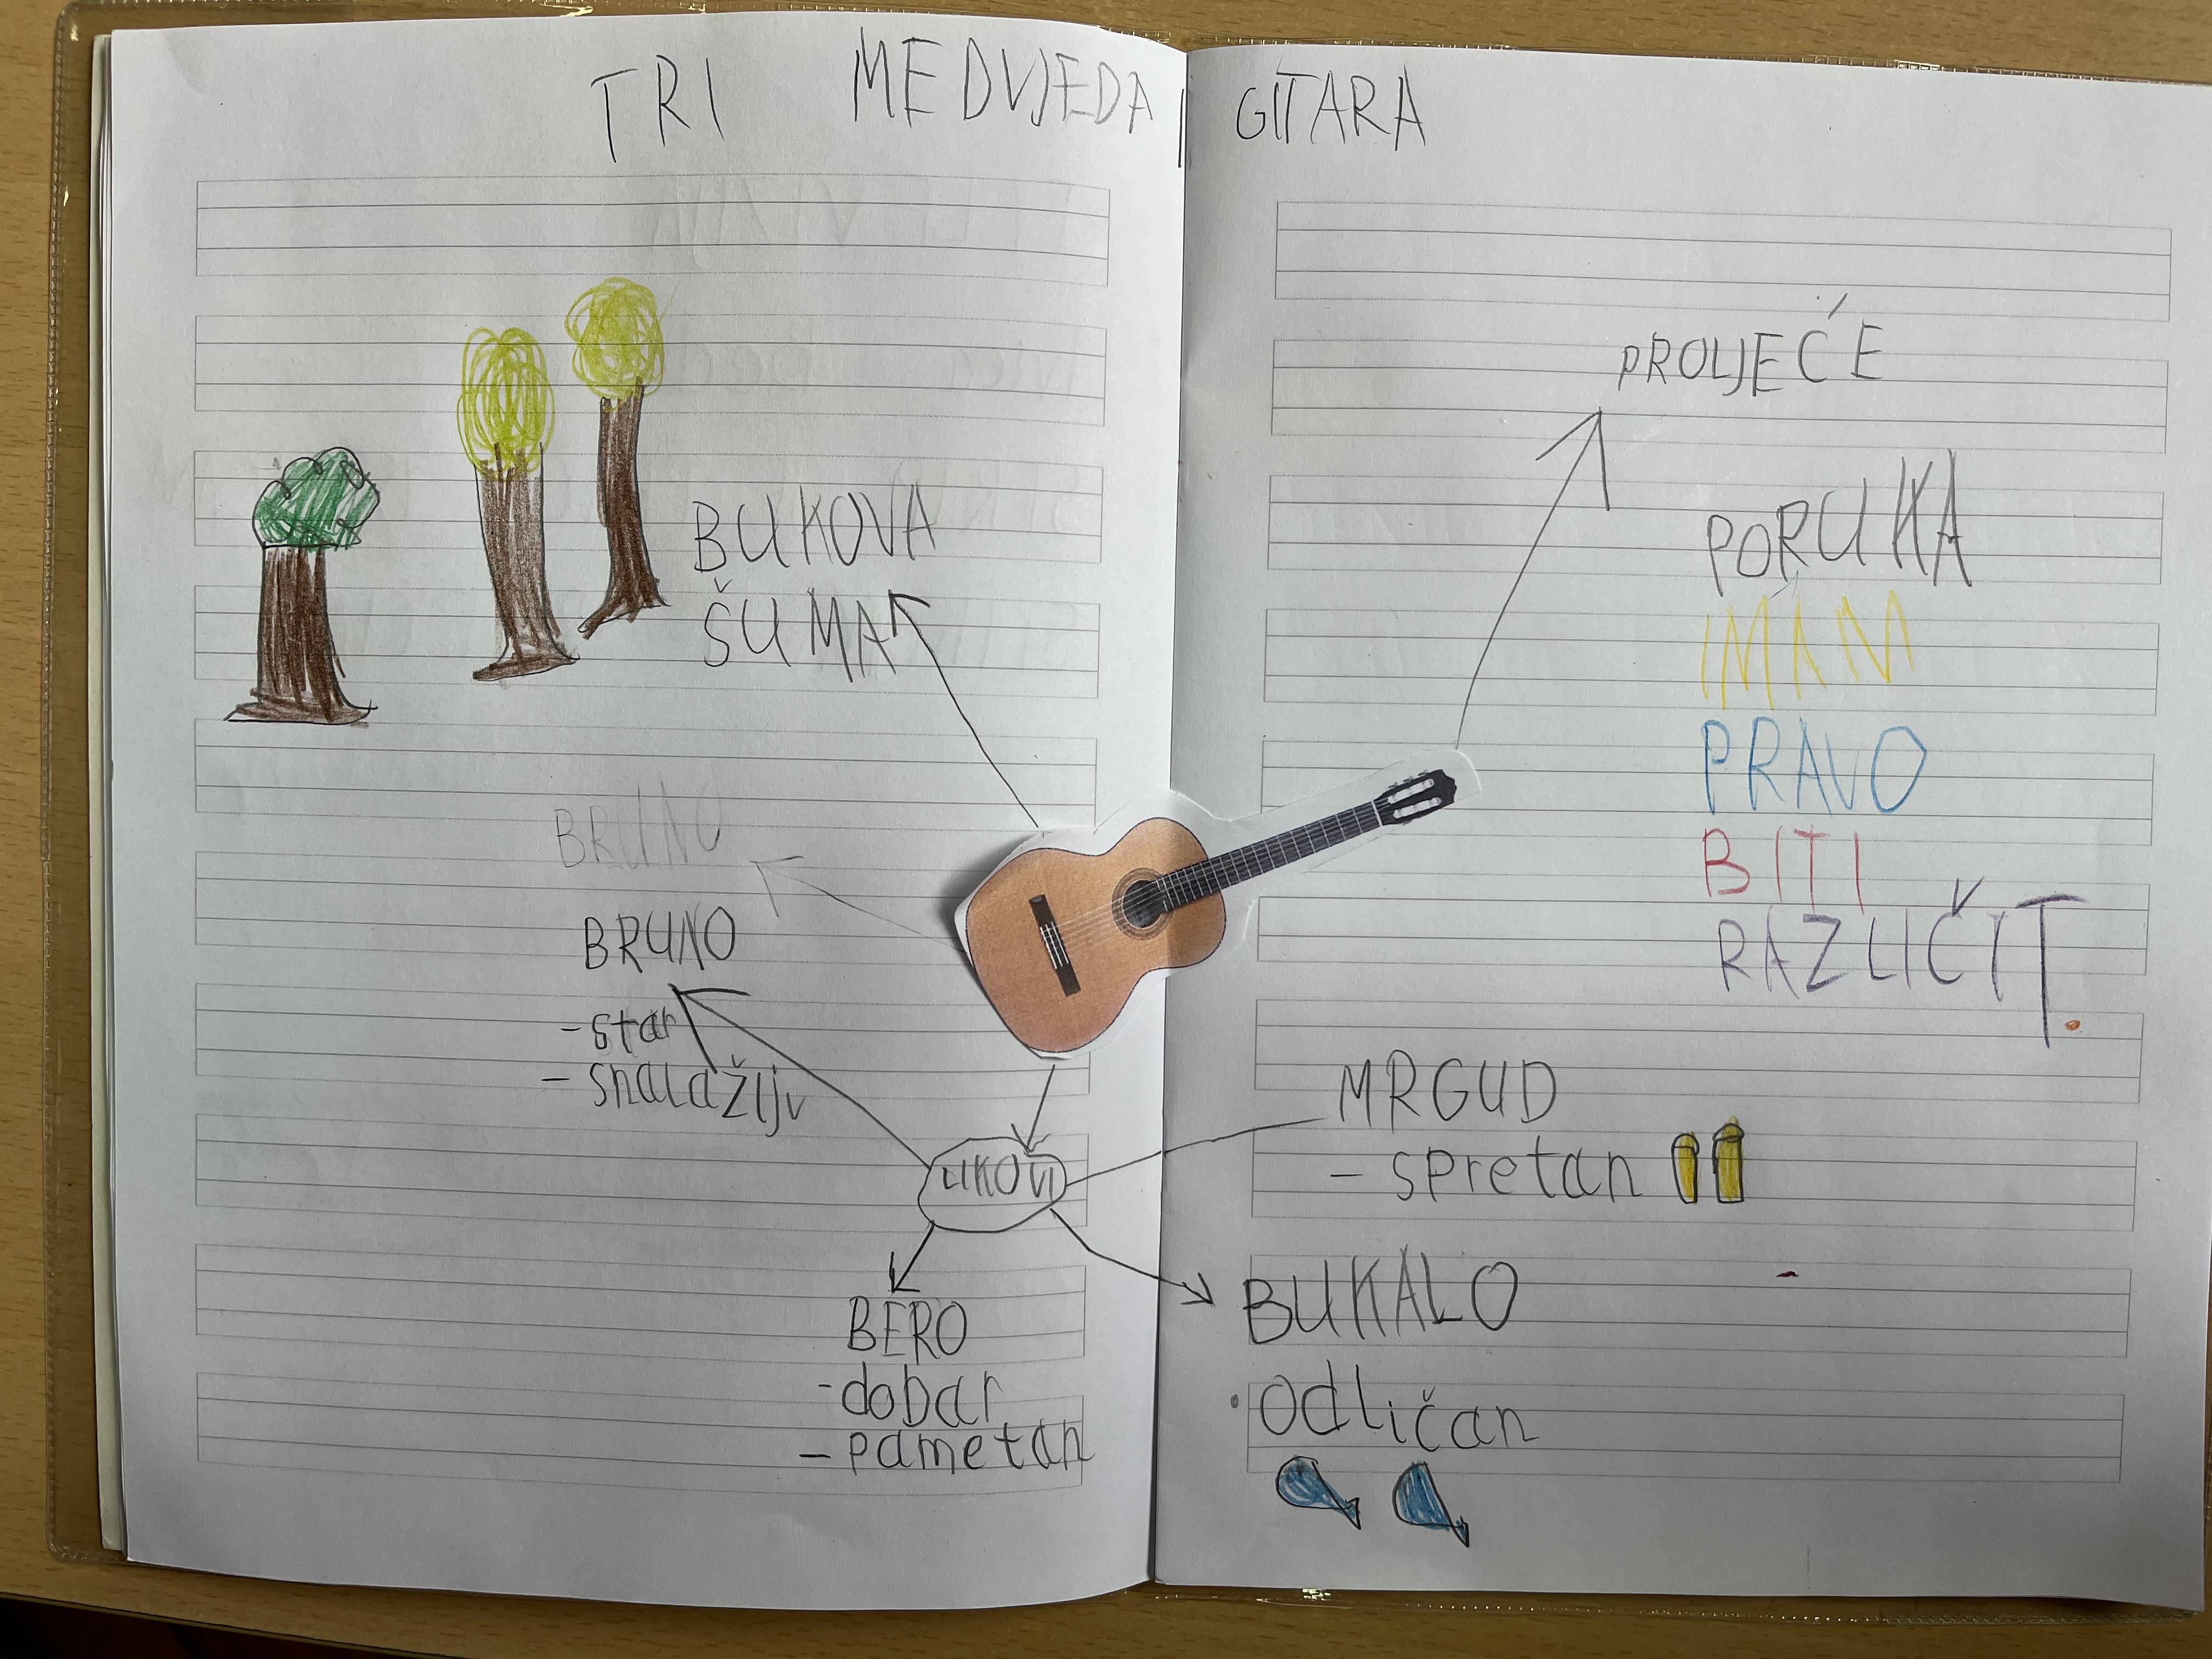 TRI MEDVJEDA I GITARA
BUKOVA
ŠUMA
BRUNO
BRUNO
- star
- snalažljv
LIKOVI
BERO
- dobar
- pametan
PROLJEĆE
PORUKA
IMAM
PRAVO
BITI
RAZLIČIT.
MRGUD
- spretan
BUKALO
• odličan